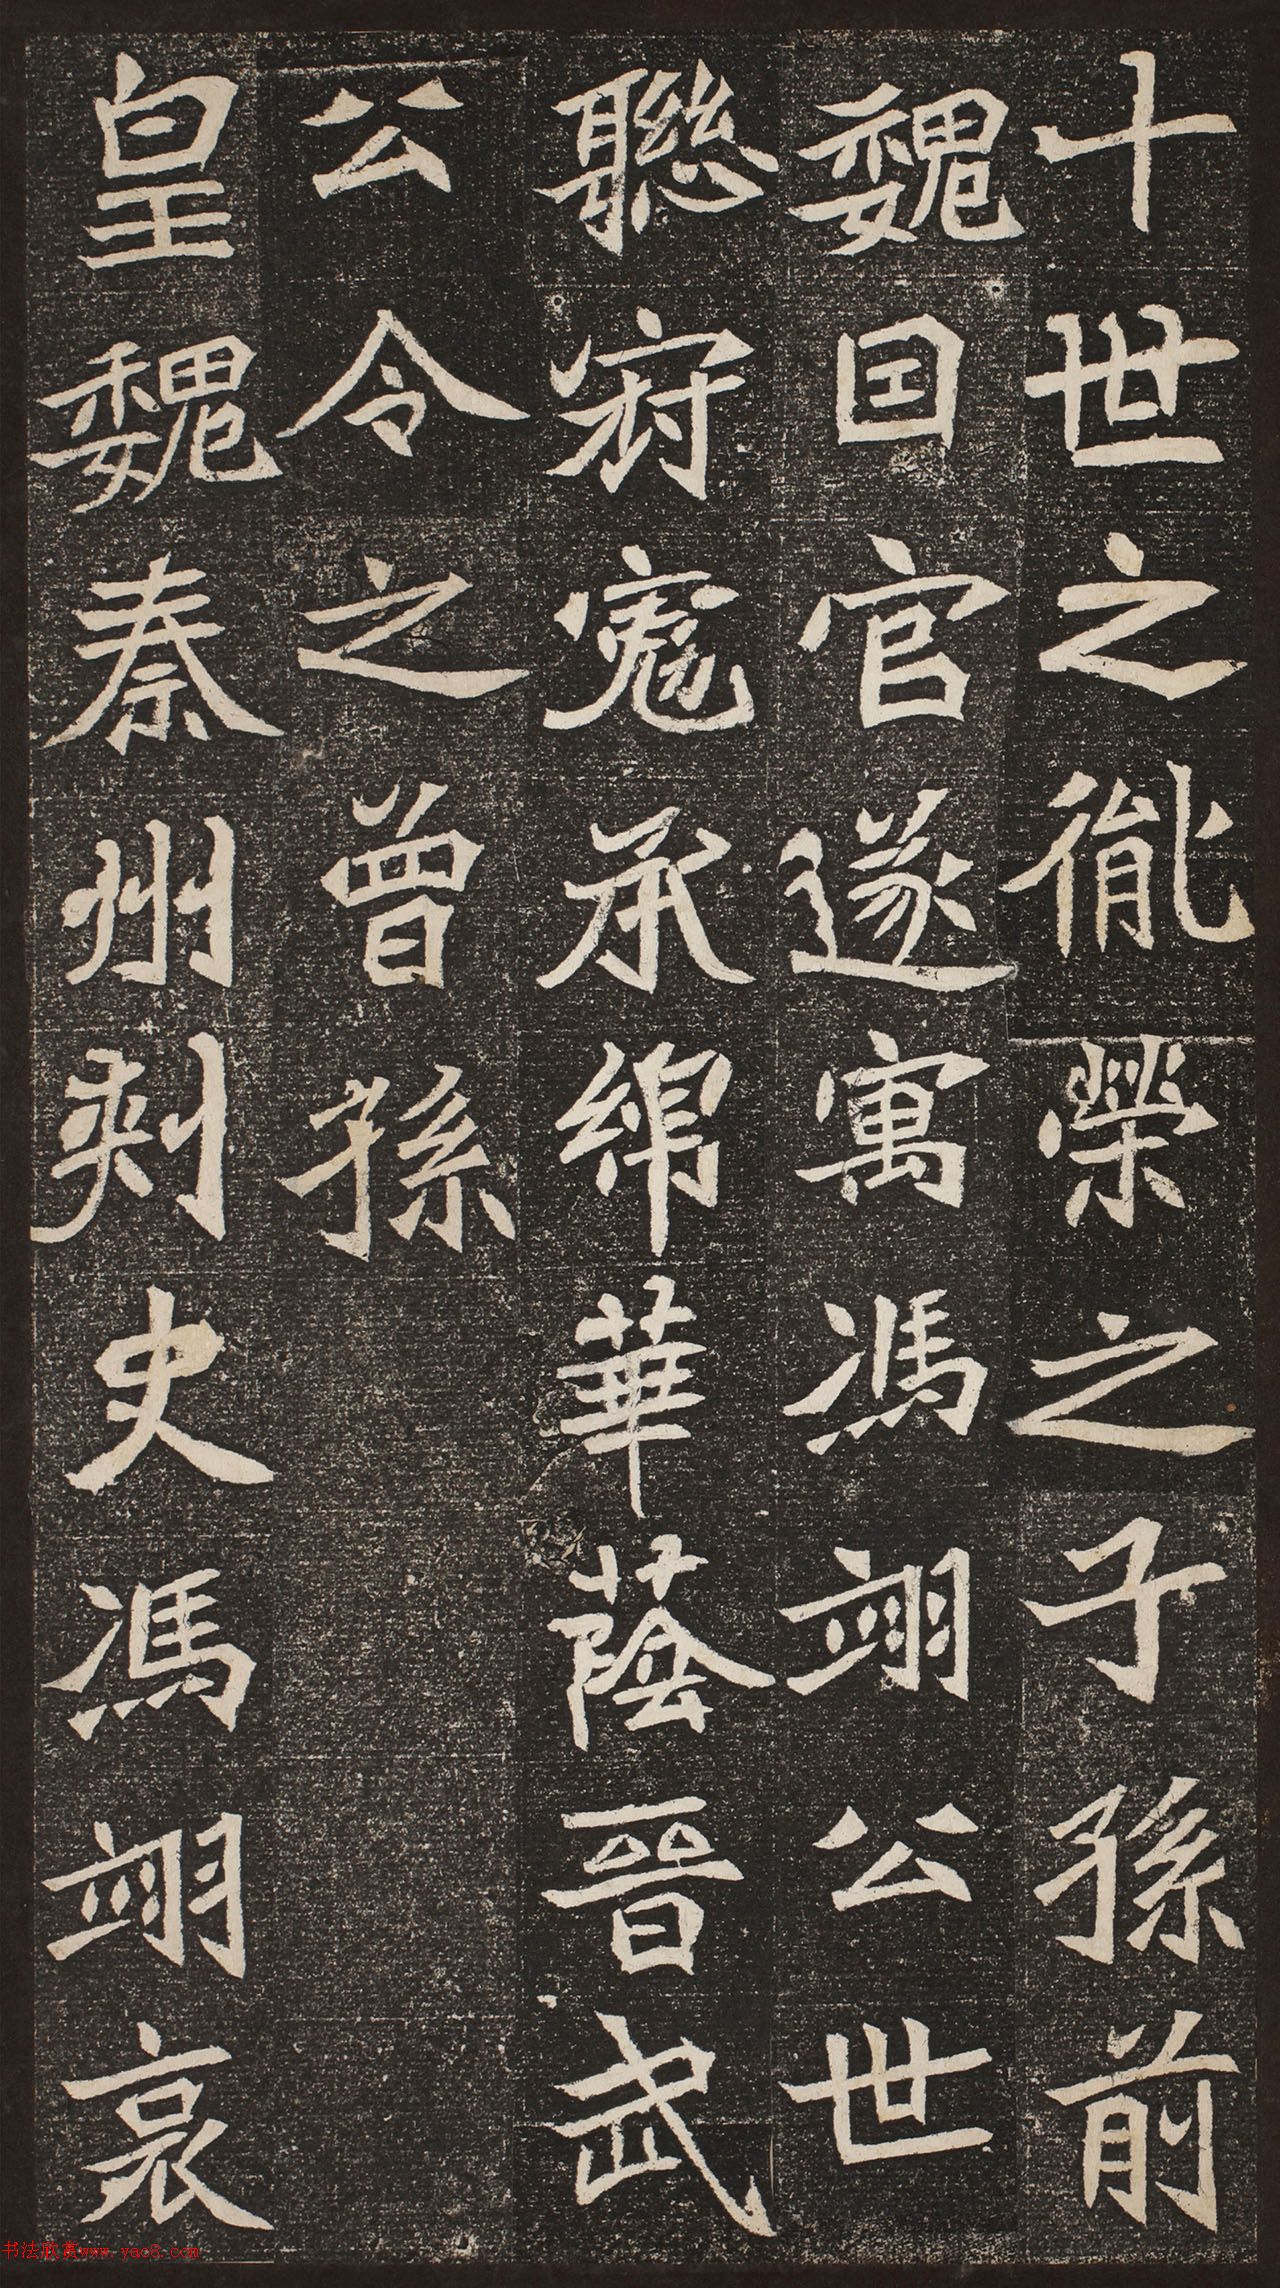 十世之胤榮之子孫前
魏囯官遂寓馮翊公世
聡穷寇承綿華蔭晉武
公令之曾孫
皇魏秦州刾史馮翊哀
书法欣赏www.yac8.com